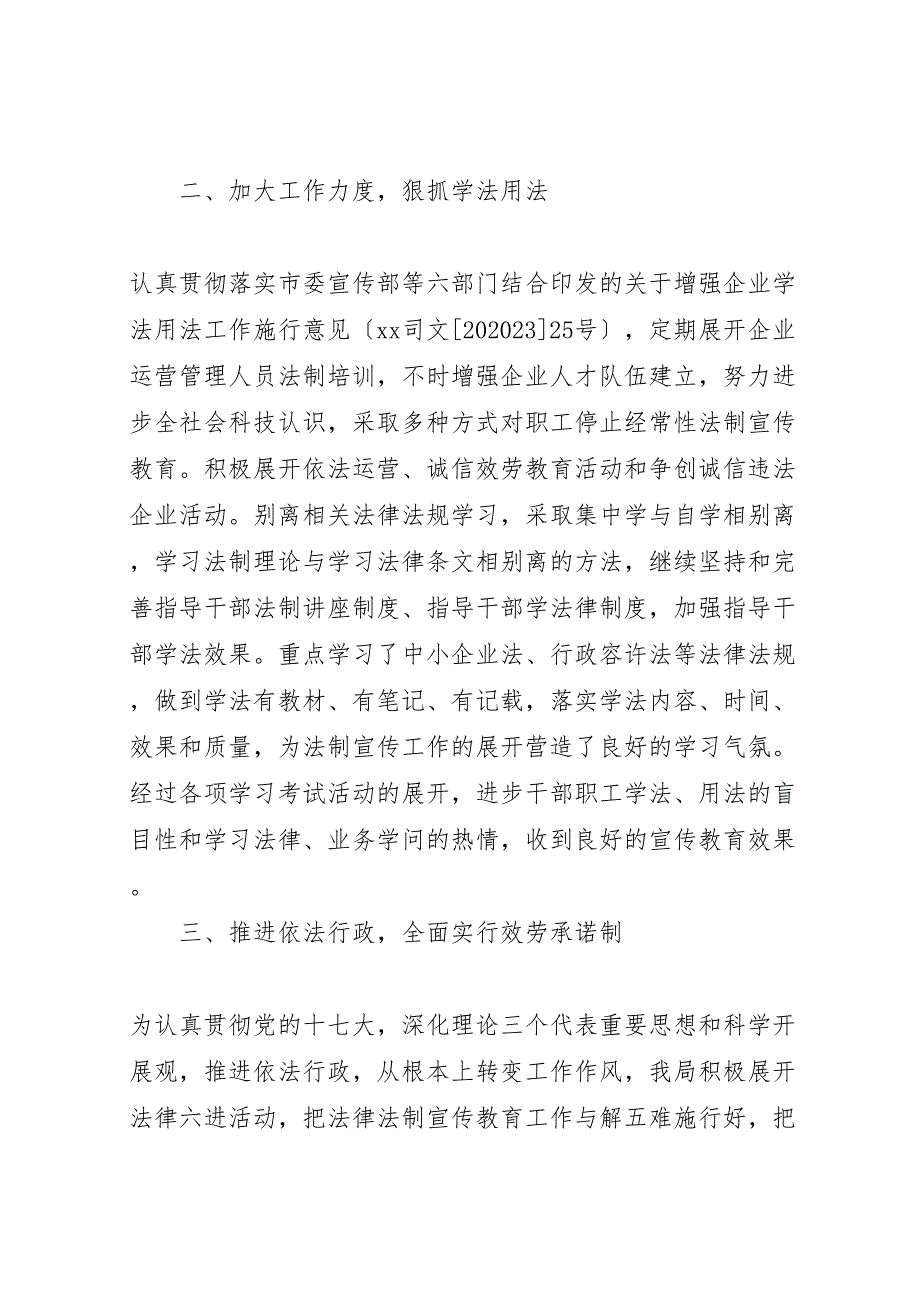 二、加大工作力度，狠抓学法用法
认真贯彻落实市委宣传部等六部门结合印发的关于增强企业学
法用法工作施行意见〔xx司文[202023]25号〕，定期展开企业
运营管理人员法制培训，不时增强企业人才队伍建立，努力进
步全社会科技认识，采取多种方式对职工停止经常性法制宣传
教育。积极展开依法运营、诚信效劳教育活动和争创诚信违法
企业活动。别离相关法律法规学习，采取集中学与自学相别离
，学习法制理论与学习法律条文相别离的方法，继续坚持和完
善指导干部法制讲座制度、指导干部学法律制度，加强指导干
部学法效果。重点学习了中小企业法、行政容许法等法律法规
，做到学法有教材、有笔记、有记载，落实学法内容、时间、
效果和质量，为法制宣传工作的展开营造了良好的学习气氛。
经过各项学习考试活动的展开，进步干部职工学法、用法的盲
目性和学习法律、业务学问的热情，收到良好的宣传教育效果
。
三、推进依法行政，全面实行效劳承诺制
为认真贯彻党的十七大，深化理论三个代表重要思想和科学开
展观，推进依法行政，从根本上转变工作作风，我局积极展开
法律六进活动，把法律法制宣传教育工作与解五难施行好，把